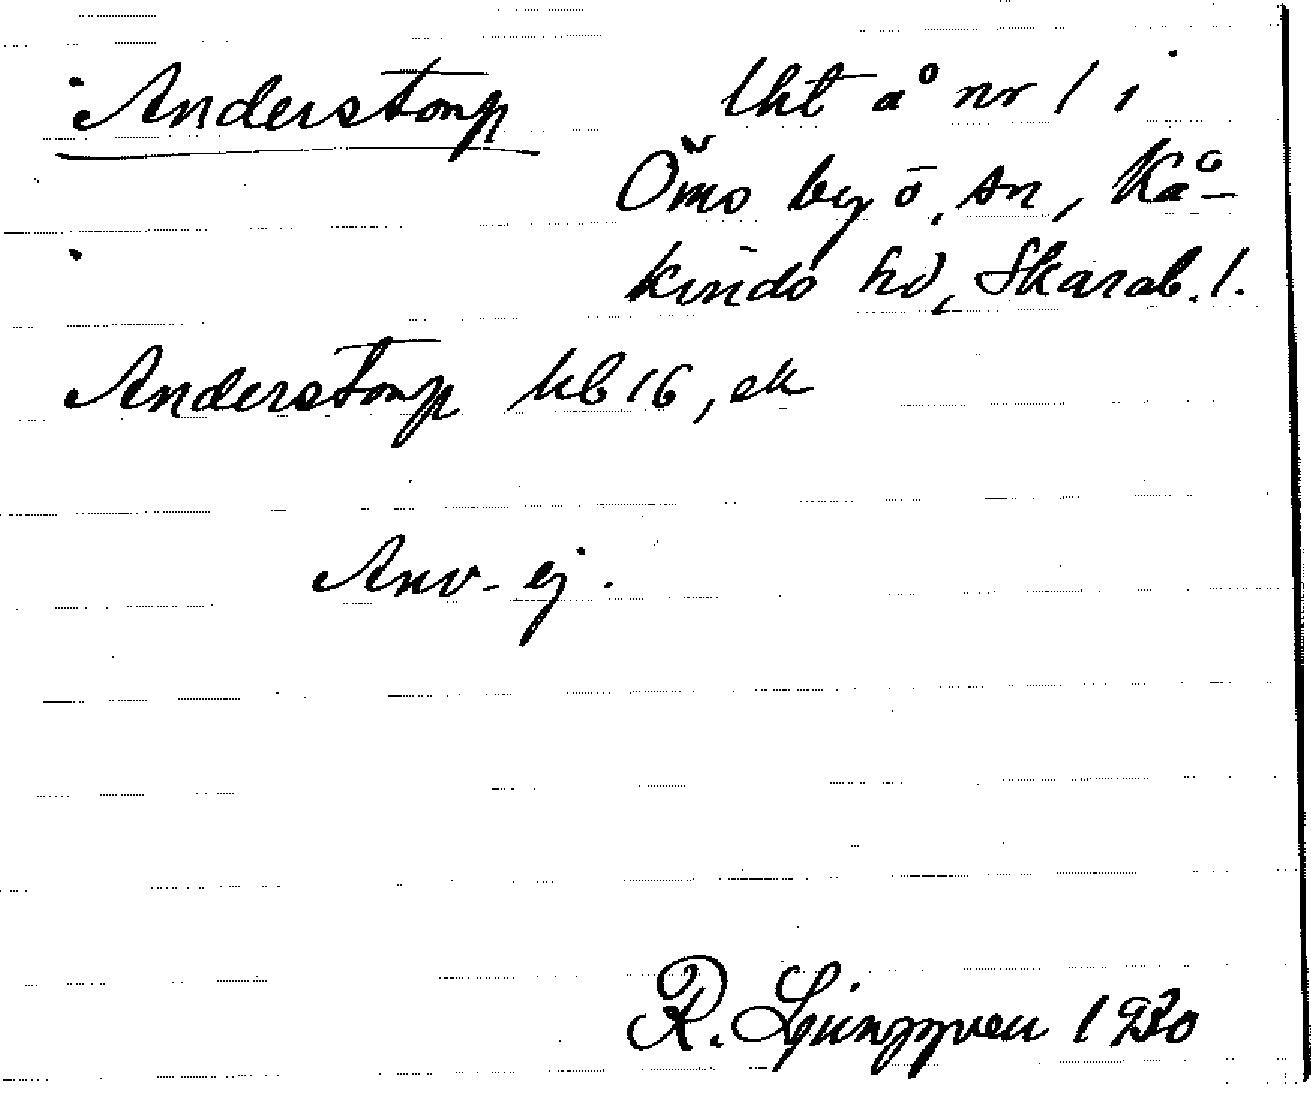 Anderstorp lht å nr 1 i
Ömo by ö, sn, Kå-
kinds hd, Skarab. l.
Anderstorp kb 16, ek
Anv. ej.
R. Ljunggren 1930